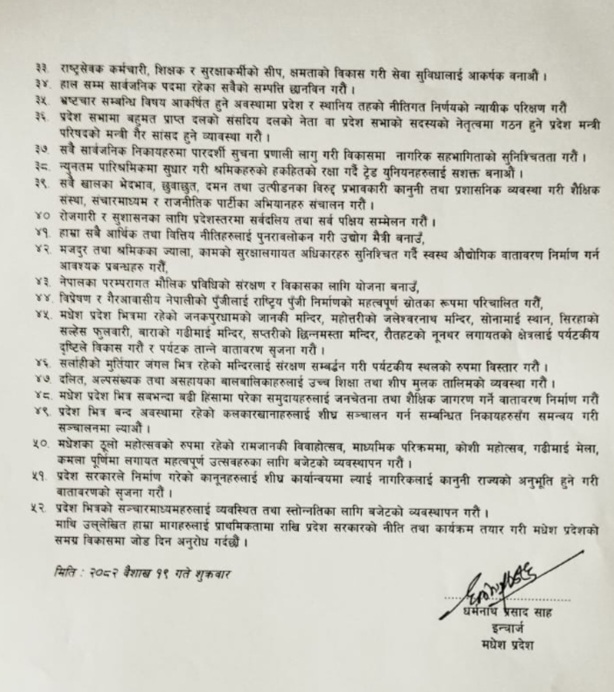 ३३. राष्ट्रसेवक कर्मचारी, शिक्षक र सुरक्षाकर्मीको सीप, क्षमताको विकास गरी सेवा सुविधालाई आकर्षक बनाऔं ।
३४. हाल सम्म सार्वजनिक पदमा रहेका सबैको सम्पत्ति छानविन गरौं ।
३५. भ्रष्टचार सम्बन्धि विषय आकर्षित हुने अवस्थामा प्रदेश र स्थानिय तहको नीतिगत निर्णयको न्यायीक परिक्षण गरौं
३६. प्रदेश सभामा बहुमत प्राप्त दलको संसदिय दलको नेता वा प्रदेश सभाको सदस्यको नेतृत्वमा गठन हुने प्रदेश मन्त्री
परिषदको मन्त्री गैर सांसद हुने व्यवस्था गरौं ।
३७. सबै सार्वजनिक निकायहरुमा पारदर्शी सुचना प्रणाली लागु गरी विकासमा नागरिक सहभागिताको सुनिश्चितता गरौं ।
३८. न्युनतम पारिश्रमिकमा सुधार गरी श्रमिकहरुको हकहितको रक्षा गर्दै ट्रेड युनियनहरुलाई सशक्त बनाऔं ।
३९. सबै खालका भेदभाव, छुवाछुत, दमन तथा उत्पीडनका विरुद्द प्रभावकारी कानुनी तथा प्रशासनिक व्यवस्था गरी शैक्षिक
संस्था, संचारमाध्यम र राजनीतिक पार्टीका अभियानहरु संचालन गरौं ।
४० रोजगारी र सुशासनका लागि प्रदेशस्तरमा सर्वदलिय तथा सर्व पक्षिय सम्मेलन गरौं ।
४१. हाम्रा सबै आर्थिक तथा वित्तिय नीतिहरुलाई पुनरावलोकन गरी उद्योग मैत्री बनाउँ,
४२ मजदुर तथा श्रमिकका ज्याला, कामको सुरक्षालगायत अधिकारहरु सुनिश्चित गर्दै स्वस्थ औद्योगिक वातावरण निर्माण गर्न
आवश्यक प्रबन्धहरु गरौं,
४३. नेपालका परम्परागत मौलिक प्रविधिको संरक्षण र विकासका लागि योजना बनाउँ,
४४. विप्रेषण र गैरआवासीय नेपालीको पुँजीलाई राष्ट्रिय पुँजी निर्माणको महत्वपूर्ण स्रोतका रूपमा परिचालित गरौं,
४५. मधेश प्रदेश भित्रमा रहेको जनकपुरधामको जानकी मन्दिर, महोत्तरीको जलेश्वरनाथ मन्दिर, सोनामाई स्थान, सिरहाको
सल्हेस फुलवारी, बाराको गढीमाई मन्दिर, सप्तरीको छिन्नमस्ता मन्दिर, रौतहटको नूनथर लगायतको क्षेत्रलाई पर्यटकीय
दृष्टिले विकास गरौं र पर्यटक तान्ने वातावरण सृजना गरौं ।
४६. सर्लाहीको मुर्तियार जंगल भित्र रहेको मन्दिरलाई संरक्षण सम्बर्द्धन गरी पर्यटकीय स्थलको रुपमा विस्तार गरौं ।
४७. दलित, अल्पसंख्यक तथा असहायका बालबालिकाहरुलाई उच्च शिक्षा तथा शीप मुलक तालिमको व्यवस्था गरौं ।
४८. मधेश प्रदेश भित्र सबभन्दा बढी हिंसामा परेका समुदायहरुलाई जनचेतना तथा शैक्षिक जागरण गर्ने वातावरण निर्माण गरौं
४९ प्रदेश भित्र बन्द अवस्थामा रहेको कलकारखानाहरुलाई शीघ्र सञ्चालन गर्न सम्बन्धित निकायहरुसँग समन्वय गरी
सञ्चालनमा ल्याऔं ।
५०. मधेशका ठूलो महोत्सवको रुपमा रहेको रामजानकी विवाहोत्सव, माध्यमिक परिक्रममा, कोशी महोत्सव, गढीमाई मेला,
कमला पूर्णिमा लगायत महत्वपूर्ण उत्सवहरुका लागि बजेटको व्यवस्थापन गरौं ।
५१. प्रदेश सरकारले निर्माण गरेको कानूनहरुलाई शीघ्र कार्यान्वयमा ल्याई नागरिकलाई कानुनी राज्यको अनुभूति हुने गरी
वातावरणको सृजना गरौं ।
५२. प्रदेश भित्रको सञ्चारमाध्यमहरुलाई व्यवस्थित तथा स्तोन्नतिका लागि बजेटको व्यवस्थापन गरौं ।
माथि उल्लेखित हाम्रा मागहरुलाई प्राथमिकतामा राखि प्रदेश सरकारको नीति तथा कार्यक्रम तयार गरी मधेश प्रदेशको
समग्र विकासमा जोड दिन अनुरोध गर्दछौं ।
मिति : २०८२ वैशाख १९ गते शुक्रवार
धर्मनाथ प्रसाद साह
इन्चार्ज
मधेश प्रदेश